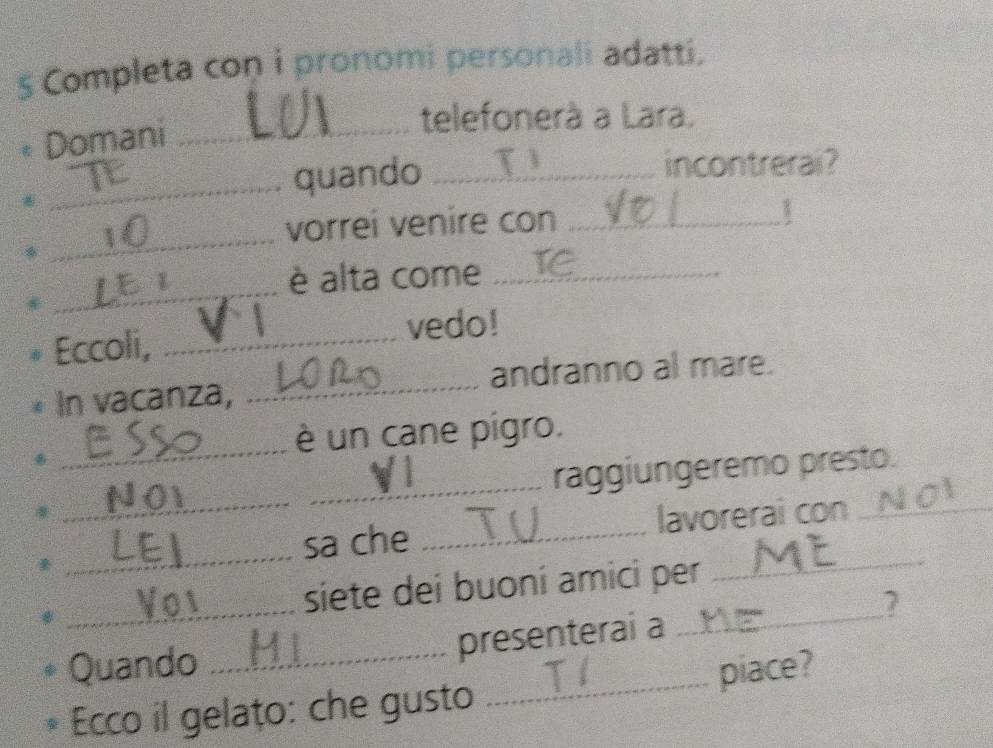 5 Completa con i pronomi personali adatti.
• Domani LUI telefonerà a Lara.
• TE quando TI incontrerai?
• IO vorrei venire con VOI !
• LEI è alta come TE
• Eccoli, VI vedo!
• In vacanza, LORO andranno al mare.
• ESSO è un cane pigro.
• NOI VI raggiungeremo presto.
• LEI sa che TU lavorerai con NOI
• VOI siete dei buoni amici per ME
• Quando MI presenterai a ME ?
• Ecco il gelato: che gusto TI piace?